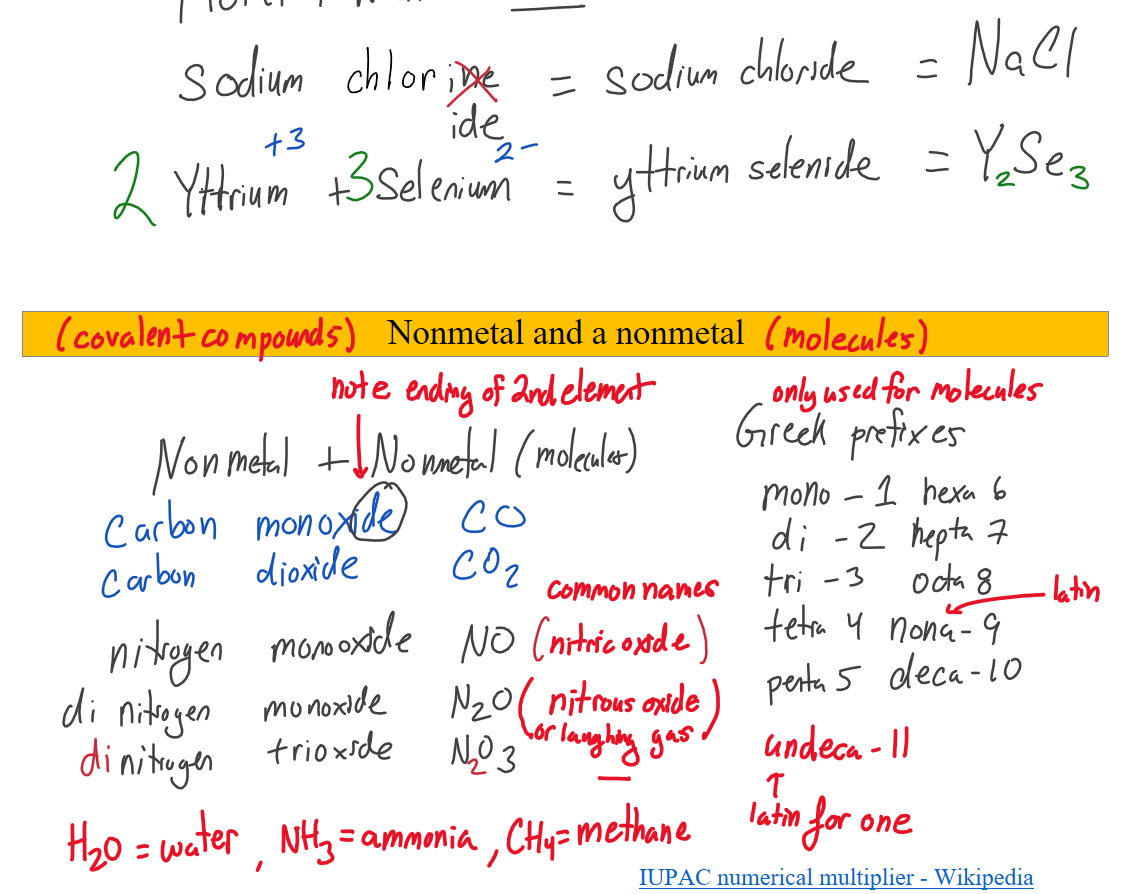 Sodium chlorine = sodium chloride = NaCl
ide
+3 2-
2 Yttrium + 3 Selenium = yttrium selenide = Y2Se3
(covalent compounds) Nonmetal and a nonmetal (molecules)
note ending of 2nd element
Nonmetal + Nonmetal (molecules)
Carbon monoxide CO
Carbon dioxide CO2
common names
nitrogen monooxide NO (nitric oxide)
di nitrogen monoxide N2O (nitrous oxide
or laughing gas)
dinitrogen trioxide N2O3
only used for molecules
Greek prefixes
mono - 1 hexa 6
di - 2 hepta 7
tri - 3 octa 8
latin
tetra 4 nona - 9
penta 5 deca - 10
undeca - 11
latin for one
H2O = water, NH3 = ammonia, CH4 = methane
IUPAC numerical multiplier - Wikipedia